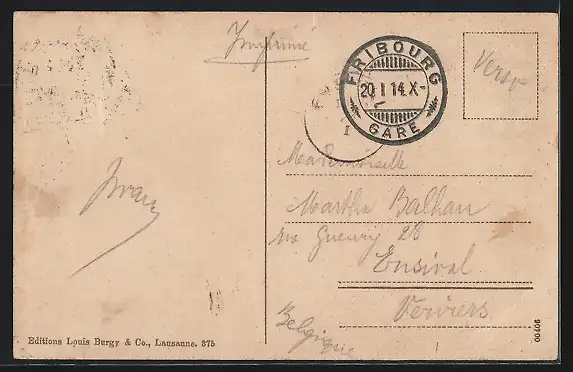 Imprimé
FRIBOURG
20 I 14.X-
GARE
I
Verso
Mademoiselle
Martha Balhan
28
Ensival
Verviers
Belgique
Editions Louis Burgy & Co., Lausanne. 375